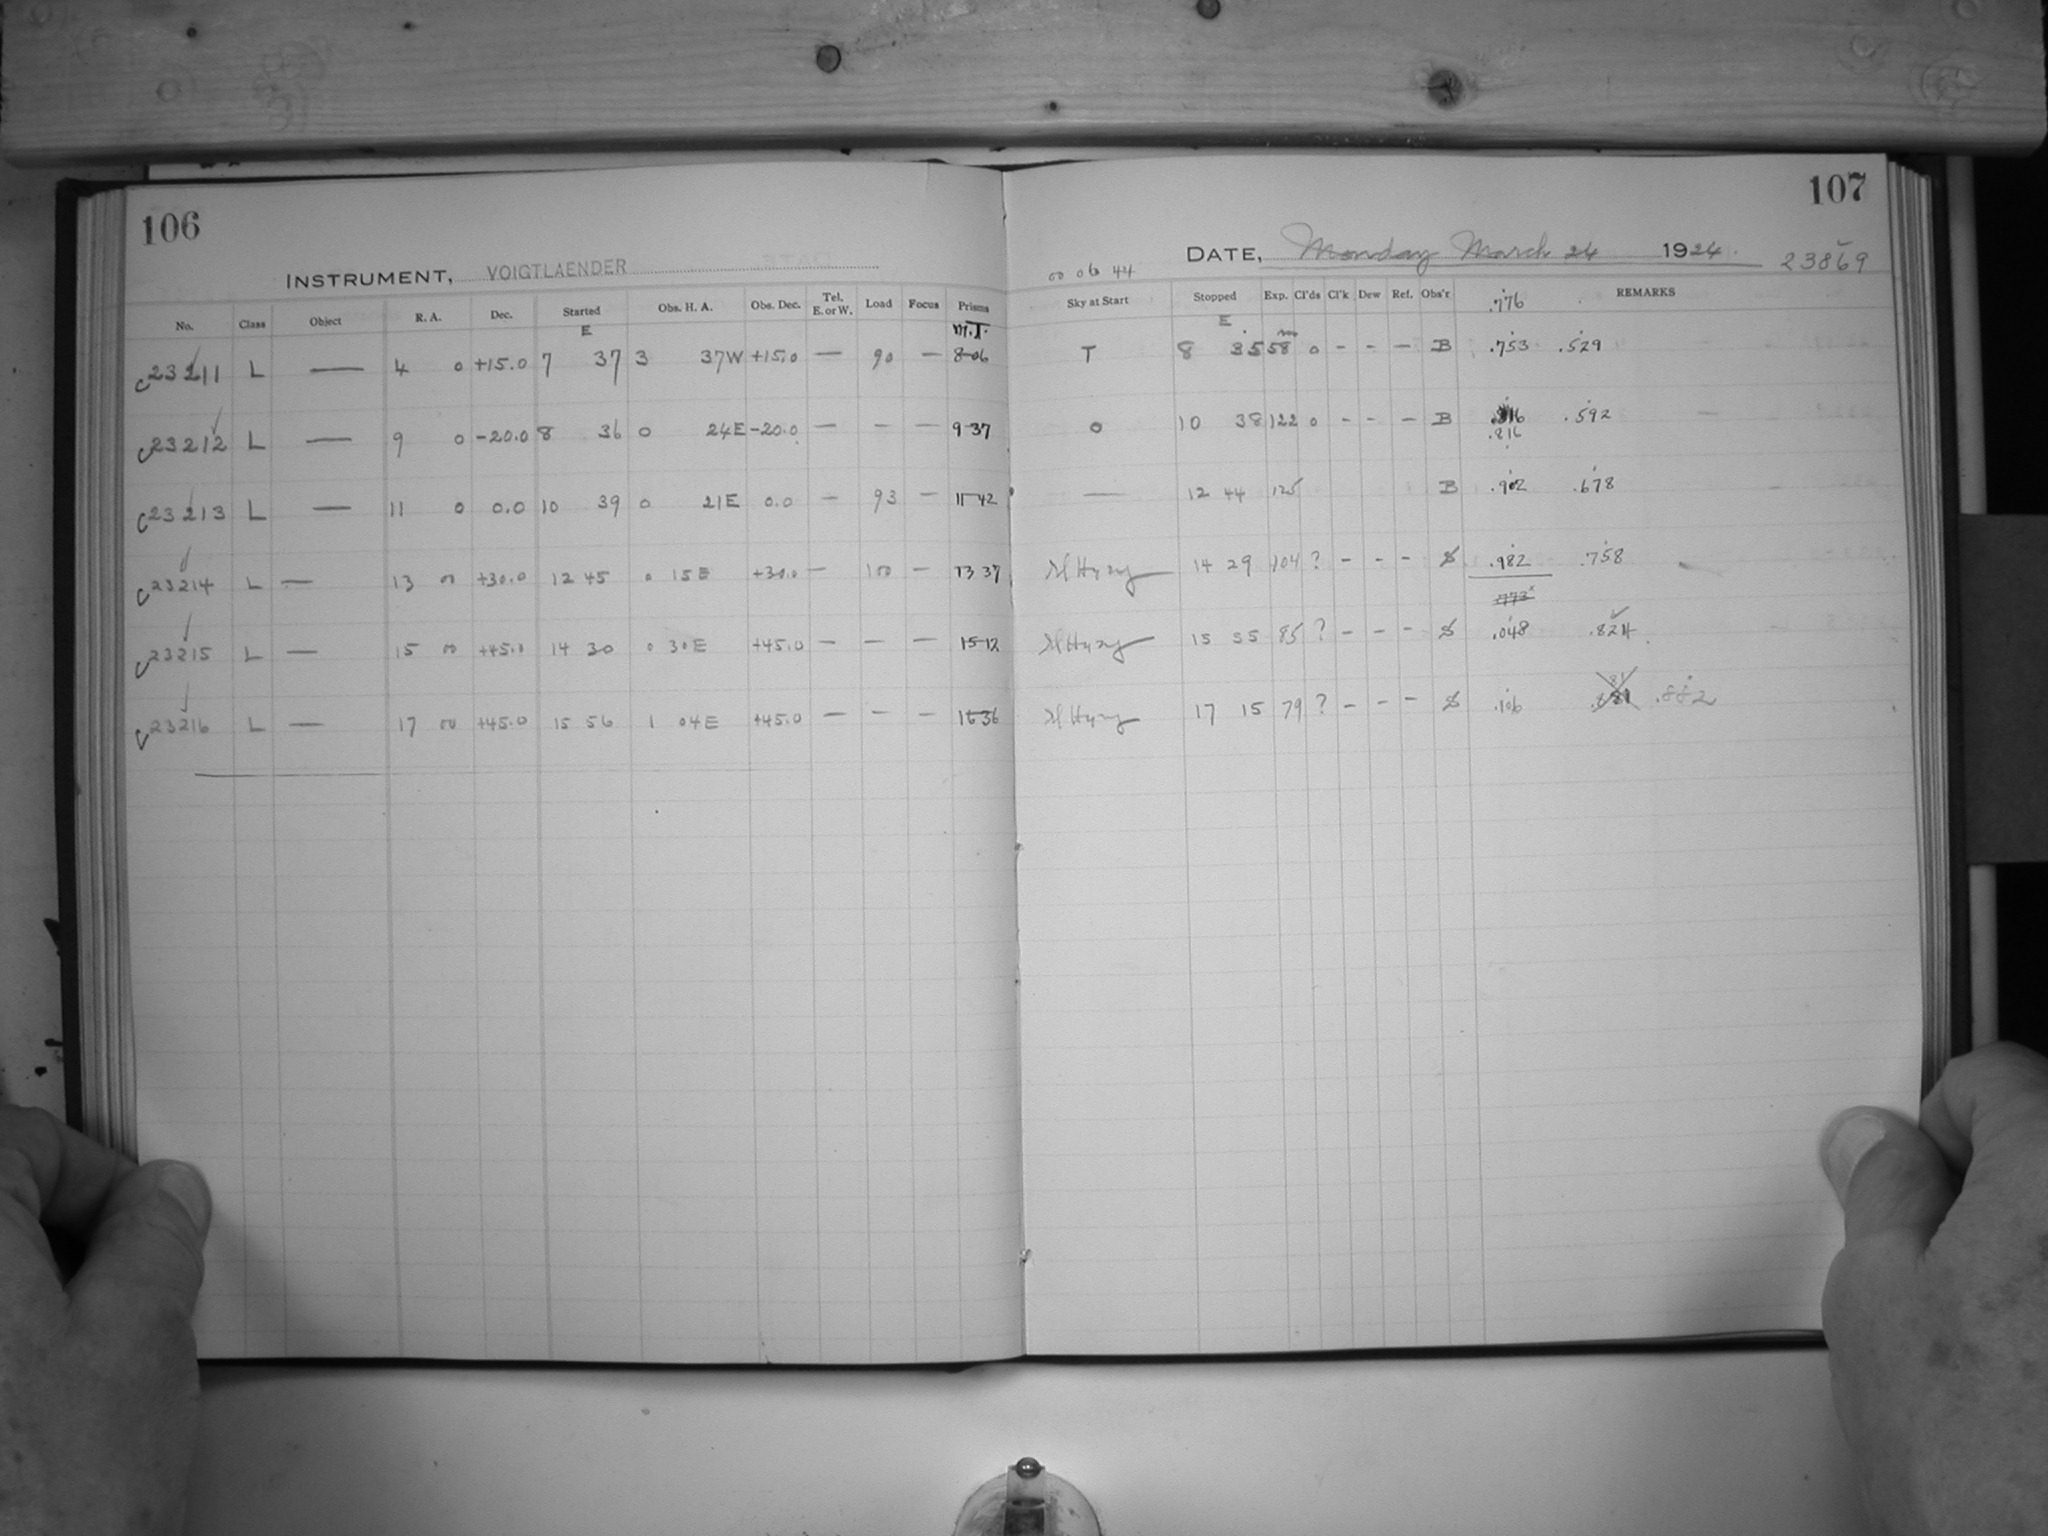 106
INSTRUMENT, VOIGTLAENDER
No. Class Object R. A. Dec. Started Obs. H. A. Obs. Dec. Tel. E. or W. Load Focus Prisms
E M.T.
C23211 L — 4 0 +15.0 7 37 3 37W +15.0 — 90 — 8 06
C23212 L — 9 0 -20.0 8 36 0 24E -20.0 — - — 9 37
C23213 L — 11 0 0.0 10 39 0 21E 0.0 — 93 — 11 42
C23214 L — 13 00 +30.0 12 45 0 15E +30.0 — 100 — 13 37
C23215 L — 15 00 +45.0 14 30 0 30E +45.0 — — — 15 12
C23216 L — 17 00 +45.0 15 56 1 04E +45.0 — — — 16 36
107
DATE, Monday March 24 1924.
23869
00 06 44
Sky at Start Stopped Exp. Cl'ds Cl'k Dew Ref. Obs'r REMARKS
.776
E m
T 8 35 58 0 - - — B .753 .529
0 10 38 122 0 - - — B .816 .592
.816
— 12 44 125 B .902 .678
14 29 104 ? - - - S .982 .758
.773
15 55 85 ? - - - S .048 .824
17 15 79 ? - - - S .106 .881 .882
81